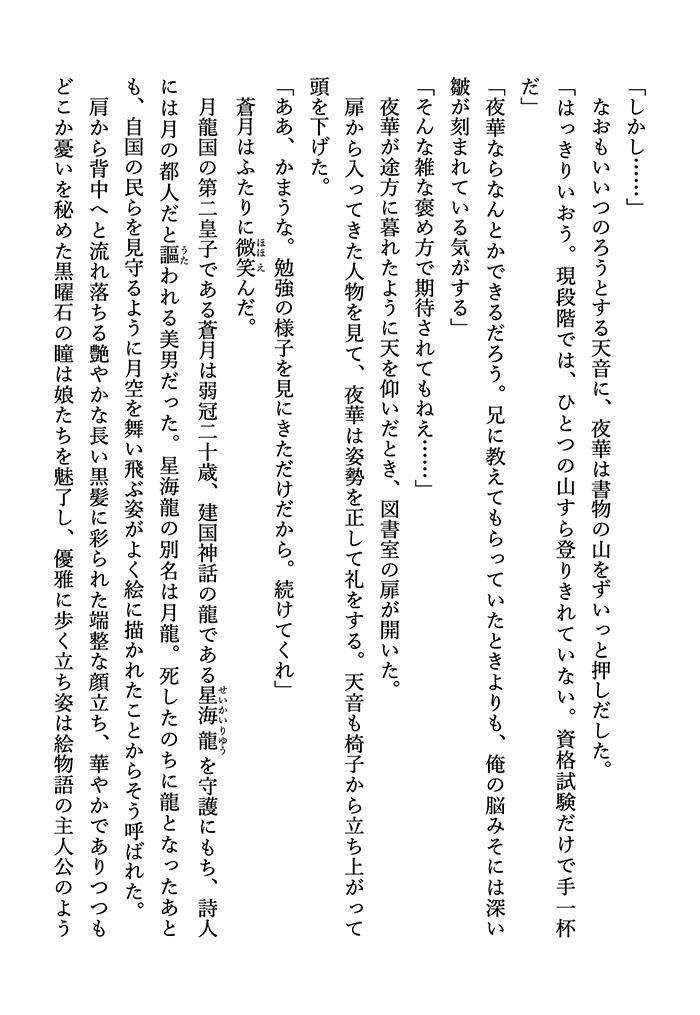 「しかし……」
　なおもいいつのろうとする天音に、夜華は書物の山をずいっと押しだした。
「はっきりいおう。現段階では、ひとつの山すら登りきれていない。資格試験だけで手一杯
だ」
「夜華ならなんとかできるだろう。兄に教えてもらっていたときよりも、俺の脳みそには深い
皺が刻まれている気がする」
「そんな雑な褒め方で期待されてもねえ……」
　夜華が途方に暮れたように天を仰いだとき、図書室の扉が開いた。
　扉から入ってきた人物を見て、夜華は姿勢を正して礼をする。天音も椅子から立ち上がって
頭を下げた。
「ああ、かまうな。勉強の様子を見にきただけだから。続けてくれ」
　蒼月はふたりに微笑んだ。
　月龍国の第二皇子である蒼月は弱冠二十歳、建国神話の龍である星海龍を守護にもち、詩人
には月の都人だと謳われる美男だった。星海龍の別名は月龍。死したのちに龍となったあと
も、自国の民らを見守るように月空を舞い飛ぶ姿がよく絵に描かれたことからそう呼ばれた。
　肩から背中へと流れ落ちる艶やかな長い黒髪に彩られた端整な顔立ち、華やかでありつつも
どこか憂いを秘めた黒曜石の瞳は娘たちを魅了し、優雅に歩く立ち姿は絵物語の主人公のよう